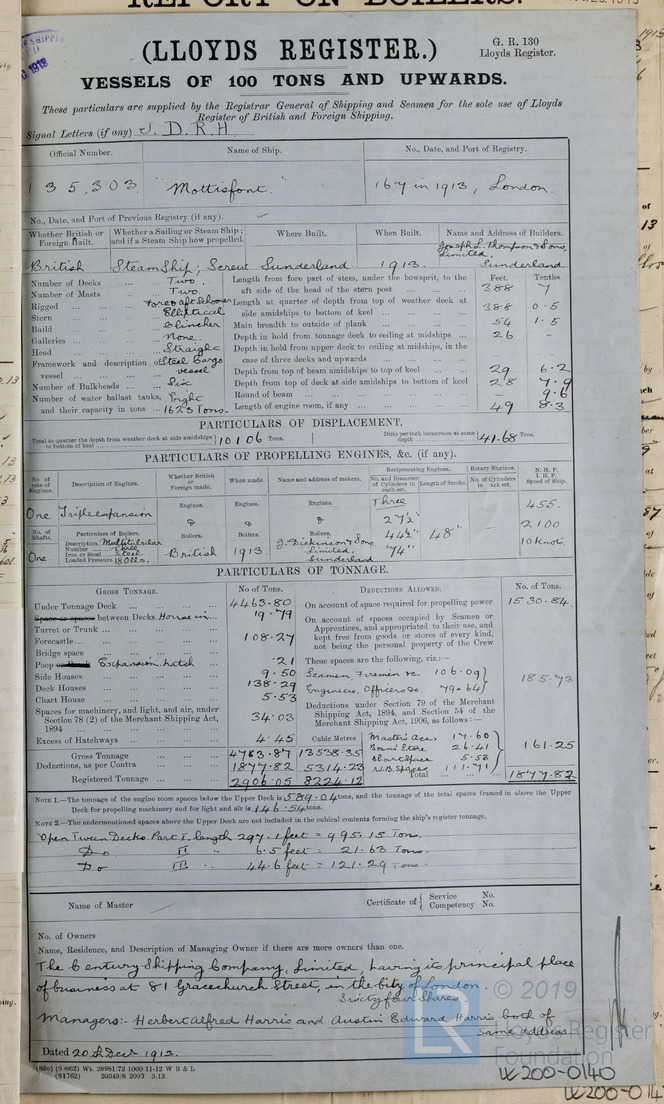 REPORT ON BOILERS.
(LLOYDS REGISTER.)
G. R. 130
Lloyds Register.
VESSELS OF 100 TONS AND UPWARDS.
These particulars are supplied by the Registrar General of Shipping and Seamen for the sole use of Lloyds
Register of British and Foreign Shipping.
Signal Letters (if any) J. D. R. H.
Official Number. Name of Ship. No., Date, and Port of Registry.
135,303 "Mottisfont" 167 in 1913, London
No., Date, and Port of Previous Registry (if any).
Whether British or Foreign Built. Whether a Sailing or Steam Ship; and if a Steam Ship how propelled. Where Built. When Built. Name and Address of Builders.
Joseph L. Thompson & Sons
Limited,
British Steam Ship; Screw Sunderland 1913. Sunderland
Feet. Tenths
Number of Decks Two Length from fore part of stem, under the bowsprit, to the aft side of the head of the stern post 388 7
Number of Masts Two
Rigged Fore & aft Schooner Length at quarter of depth from top of weather deck at side amidships to bottom of keel 388 0.5
Stern Elliptical
Build Clincher Main breadth to outside of plank 54 1.5
Galleries None Depth in hold from tonnage deck to ceiling at midships 26 -
Head Straight Depth in hold from upper deck to ceiling at midships, in the case of three decks and upwards
Framework and description of vessel Steel Cargo vessel Depth from top of beam amidships to top of keel 29 6.2
Number of Bulkheads Six Depth from top of deck at side amidships to bottom of keel 28 7.9
Number of water ballast tanks, Eight Round of beam - 9.6
and their capacity in tons 1623 Tons. Length of engine room, if any 49 8.3
PARTICULARS OF DISPLACEMENT.
Total to quarter the depth from weather deck at side amidships to bottom of keel 10106 Tons. Ditto per inch immersion at same depth 41.68 Tons.
PARTICULARS OF PROPELLING ENGINES, &c. (if any).
No. of sets of Engines. Description of Engines. Whether British or Foreign made. When made. Name and address of makers. Reciprocating Engines. Rotary Engines. N. H. P. I. H. P. Speed of Ship.
No. and Diameter of Cylinders in each set. Length of Stroke. No. of Cylinders in each set.
Engines. Engines. Engines.
One Triple expansion & & & Three 27½" 455.
No. of Shafts. Particulars of Boilers. Boilers. Boilers. Boilers. 44½" 48" 2100
Description Multitubular
Number Three
Iron or Steel Steel
Loaded Pressure 180 lbs.
One British 1913. J. Dickinson & Sons Limited, Sunderland 74" 10 Knots.
PARTICULARS OF TONNAGE.
Gross Tonnage. No of Tons. Deductions Allowed. No. of Tons.
Under Tonnage Deck 4463.80 On account of space required for propelling power 1530.84
Space or spaces between Decks Houses in 19.79
Turret or Trunk
Forecastle 108.27
Bridge space
Poop or Break Expansion hatch .21
Side Houses 9.50
Deck Houses 138.29
Chart House 5.53
On account of spaces occupied by Seamen or Apprentices, and appropriated to their use, and kept free from goods or stores of every kind, not being the personal property of the Crew
These spaces are the following, viz.:-
Seamen, Firemen &c. 106.09
Engineers, Officers &c. 79.64
185.73
Spaces for machinery, and light, and air, under Section 78 (2) of the Merchant Shipping Act, 1894 34.03
Deductions under Section 79 of the Merchant Shipping Act, 1894, and Section 54 of the Merchant Shipping Act, 1906, as follows:-
Excess of Hatchways 4.45 Cubic Metres
Master's Acc. 17.60
Boatsn's Store 26.41
Chart Space 5.53
W.B. Spaces 111.71
161.25
Gross Tonnage 4783.87 13538.35
Deductions, as per Contra 1877.82 5314.23
Registered Tonnage 2906.05 8224.12 Total 1877.82
Note 1.—The tonnage of the engine room spaces below the Upper Deck is 589.04 tons, and the tonnage of the total spaces framed in above the Upper
Deck for propelling machinery and for light and air is 146.54 tons.
Note 2.—The undermentioned spaces above the Upper Deck are not included in the cubical contents forming the ship's register tonnage.
Open Tween Decks Part I. length 297.1 feet = 995.15 Tons.
Do II " 6.5 feet = 21.63 Tons.
Do III " 44.6 feet = 121.29 Tons.
Name of Master Certificate of { Service No. Competency No.
No. of Owners
Name, Residence, and Description of Managing Owner if there are more owners than one.
The Century Shipping Company, Limited, having its principal place
of business at 81 Gracechurch Street, in the City of London.
Sixty four Shares
Managers:- Herbert Alfred Harris and Austin Edward Harris both of
same address
Dated 20th Decr 1913.
© 2019
Lloyd's Register
Foundation
W200-0140